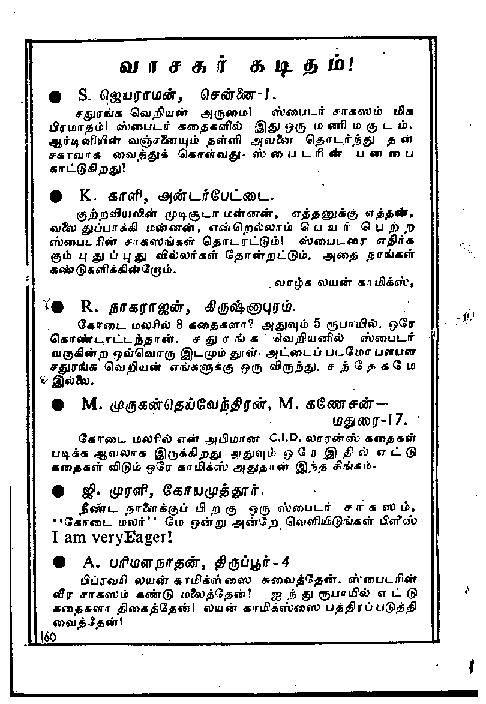 வாசகர் கடிதம்!
● S. ஜெயராமன், சென்னை-1.
சதுரங்க வெறியன் அருமை! ஸ்பைடர் சாகஸம் மிக
பிரமாதம்! ஸ்பைடர் கதைகளில் இது ஒரு மணி மகுடம்.
ஆர்டினியின் வஞ்சனையும் தள்ளி அவனை தொடர்ந்து தன்
சகாவாக வைத்துக் கொள்வது- ஸ்பைடரின்
காட்டுகிறது!
● K. காளி, அன்டர்பேட்டை.
குற்றவியலின் முடிசூடா மன்னன், எத்தனுக்கு எத்தன்,
வலை துப்பாக்கி மன்னன், என்றெல்லாம் பெயர் பெற்ற
ஸ்பைடரின் சாகஸங்கள் தொடரட்டும்! ஸ்பைடரை எதிர்க்
கும் புதுப்புது வில்லர்கள் தோன்றட்டும். அதை நாங்கள்
கண்டுகளிக்கின்றோம்.
வாழ்க லயன் காமிக்ஸ்,
● R. நாகராஜன், கிருஷ்ணாபுரம்.
கோடை மலரில் 8 கதைகளா? அதுவும் 5 ரூபாயில். ஒரே
கொண்டாட்டந்தான். சதுரங்க வெறியனில் ஸ்பைடர்
வருகின்ற ஒவ்வொரு இடமும் தூள். அட்டைப் படமோ பளபள
சதுரங்க வெறியன் எங்களுக்கு ஒரு விருந்து. சந்தேகமே
இல்லை.
● M. முருகன்தெய்வேந்திரன், M. கணேசன்—
மதுரை-17.
கோடை மலரில் என் அபிமான C.I.D. லாரன்ஸ் கதைகள்
படிக்க ஆவலாக இருக்கிறது அதுவும் ஒரே இதில் எட்டு
கதைகள் விடும் ஒரே காமிக்ஸ் அதுதான் இந்த சிங்கம்.
● ஜி. முரளி, கோயமுத்தூர்.
நீண்ட நாளைக்குப் பிறகு ஒரு ஸ்பைடர் சாகஸம்,
"கோடை மலர்" மே ஒன்று அன்றே வெளியிடுங்கள் பிளீஸ்
I am veryEager!
● A. பரிமளநாதன், திருப்பூர்-4
பிப்ரவரி லயன் காமிக்ஸை சுவைத்தேன். ஸ்பைடரின்
வீர சாகஸம் கண்டு மலைத்தேன்! ஐந்து ரூபாயில் எட்டு
கதைகளா திகைத்தேன்! லயன் காமிக்ஸை பத்திரப்படுத்தி
வைத்தேன்!
160